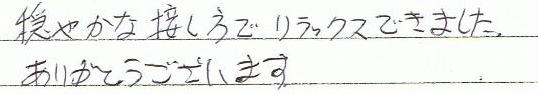 穏やかな接し方でリラックスできました。
ありがとうございます